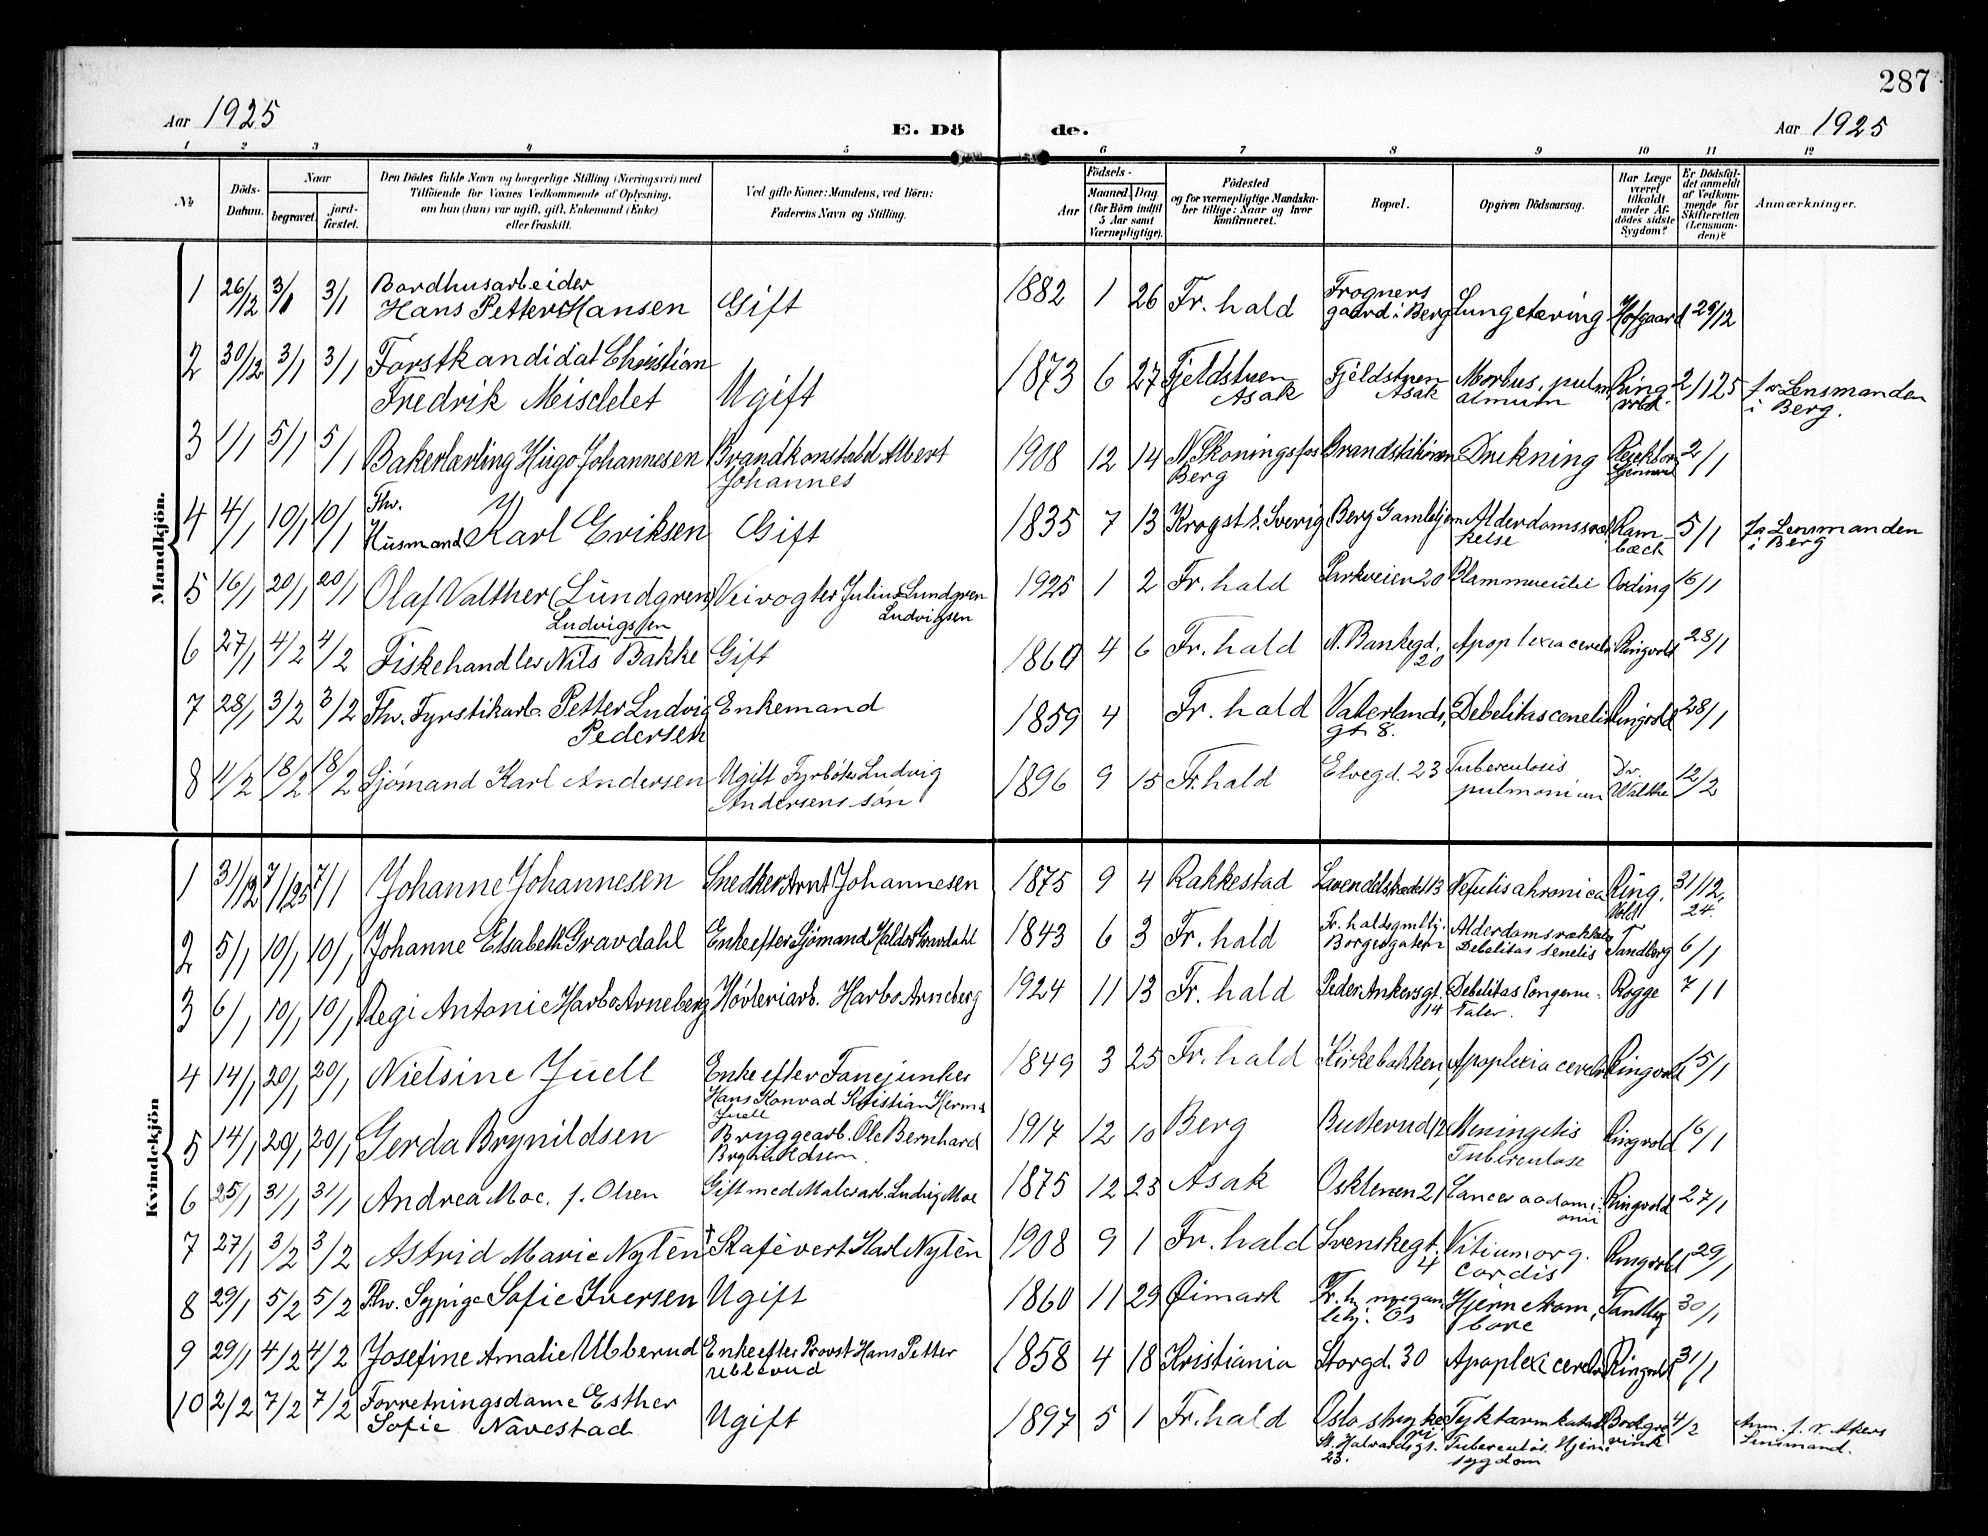 287
Aar 1925
E. Dö
de.
Aar 1925
1 2 3 4 5 6 7 8 9 10 11 12
№
Döds-
Datum.
Naar
begravet.
jord-
fæstet.
Den Dödes fulde Navn og borgerlige Stilling (Næringsvei) med
Tilföiende for Voxnes Vedkommende af Oplysning,
om han (hun) var ugift, gift, Enkemand (Enke)
eller fraskilt.
Ved gifte Koner: Mandens, ved Börn:
Faderens Navn og Stilling.
Födsels-
Aar
Maaned. Dag.
(for Börn indtil
5 Aar samt
Værnepligtige).
Födested
og for værnepligtige Mandska-
ber tillige: Naar og hvor
konfirmeret.
Bopæl.
Opgiven Dödsaarsag.
Har Læge
været
tilkaldt
under Af-
dödes sidste
Sygdom?
Er Dödsfal-
det anmeldt
af Vedkom-
mende for
Skifteretten
(Lensman-
den)?
Anmærkninger.
Mandkjön.
1 26/12 3/1 3/1 Bordhusarbeider
Hans Petter Hansen Gift 1882 1 26 Fr. hald Frogners
gaard i Berg Lungetæring Hofgaard 29/12
2 30/12 3/1 3/1 Forstkandidat Christian
Fredrik Meisdelet Ugift 1873 6 27 Fjeldstuen
Asak Fjeldstuen
Asak Morbus. pulm
almum Ring
vold. 2/1 25 f. Lensmanden
i Berg.
3 1/1 5/1 5/1 Bakerlærling Hugo Johannesen Brandkonstabel Albert
Johannes 1908 12 14 N. Skoningsfos
Berg Brandstationen Drukning 2/1
4 4/1 10/1 10/1 Fhv.
Husmand Karl Eriksen Gift 1835 7 13 Krogst. Sverig Berg Gamlehjem Alderdomssvæk
kelse Ram
bæck 5/1 fr Lensmanden
i Berg
5 16/1 20/1 20/1 Olaf Valther (Lundgren) Veivogter Julius Lundgren
Ludvigssen Ludvigsen 1925 1 2 Fr. hald Parkveien 20 Ording 16/1
6 27/1 4/2 4/2 Fiskehandler Nils Bakke Gift 1860 4 6 Fr. hald N. Bankegd.
20 Apoplexia cerebr Ringvold 28/1
7 28/1 3/2 3/2 Fhv. Fyrstikarb. Petter Ludvig
Pedersen Enkemand 1859 4 Fr. hald Vaterlands.
gt 8. Debelitas cenelis Ringvold 28/1
8 11/2 18/2 18/2 Sjömand Karl Andersen Ugift Fyrböter Ludvig
Andersens søn 1896 9 15 Fr. hald Elvegd. 23 Tuberculosis
pulmonium Dr.
Walthe 12/2
Kvindekjön
1 31/12 7/1 25 7/1 Johanne Johannesen Snedker Arnt Johannesen 1875 9 4 Rakkestad Lavendelstrædet 13 Nefutis ahronica Ring.
vold 31/12.
24.
2 5/1 10/1 10/1 Johanne Elsabeth Gravdahl Enke efter Sjömand Haldor Gravdahl 1843 6 3 Fr. hald Fr. haldsgmlhj.
Borgergaten Alderdomsvækkelse
Debelitas senelis Tandberg 6/1
3 6/1 10/1 10/1 Regi Antonie Harbo Arneberg Høvleriarb. Harbo Arneberg 1924 11 13 Fr. hald Peder Ankersgt.
14 Debelitas Congeni-
Taler. Rogge 7/1
4 14/1 20/1 20/1 Nielsine Juell Enke efter Fanejunker
Hans Konrad Kristian Herman
Juell 1849 3 25 Fr. hald Kirkebakken, Apoplexia cerebr Ringvold 15/1
5 14/1 20/1 20/1 Gerda Brynildsen Bryggearb. Ole Bernhard
Brynildsen. 1917 12 10 Berg Busterud 12 Meningitis
Tuberculose Ringvold 16/1
6 25/1 31/1 31/1 Andrea Moe. f. Olsen Gift med Malerarb. Ludvig Moe 1875 12 23 Asak Oskleven 21 Cancer aodomi-
onii Ringvold 27/1
7 27/1 3/2 3/2 Astrid Marie Nytén † Kafévert Karl Nytén 1908 9 1 Fr. hald Svenskegt.
4 Vitium org.
cordis Ringvold 29/1
8 29/1 5/2 5/2 Fhv. Sypige Sofie Iversen Ugift 1860 11 29 Øimark Fr. h. nyegam
lehj. Os Hjernetrom,
bose Tandbg 30/1
9 29/1 4/2 4/2 Josefine Amalie Ubberud Enke efter Provst Hans Petter
Ubberud 1858 4 18 Kristiania Storgd. 30 Apoplexi cerebr Ringvold 31/1
10 2/2 7/2 7/2 Forretningsdame Esther
Sofie Navestad Ugift 1897 5 1 Fr. hald Oslo
St. Halvardsgt.
23. Tyktarmkatarr
Tuberculös. Hjerne
sygdom 4/2 Anm. f. v. Akers
Lensmand.